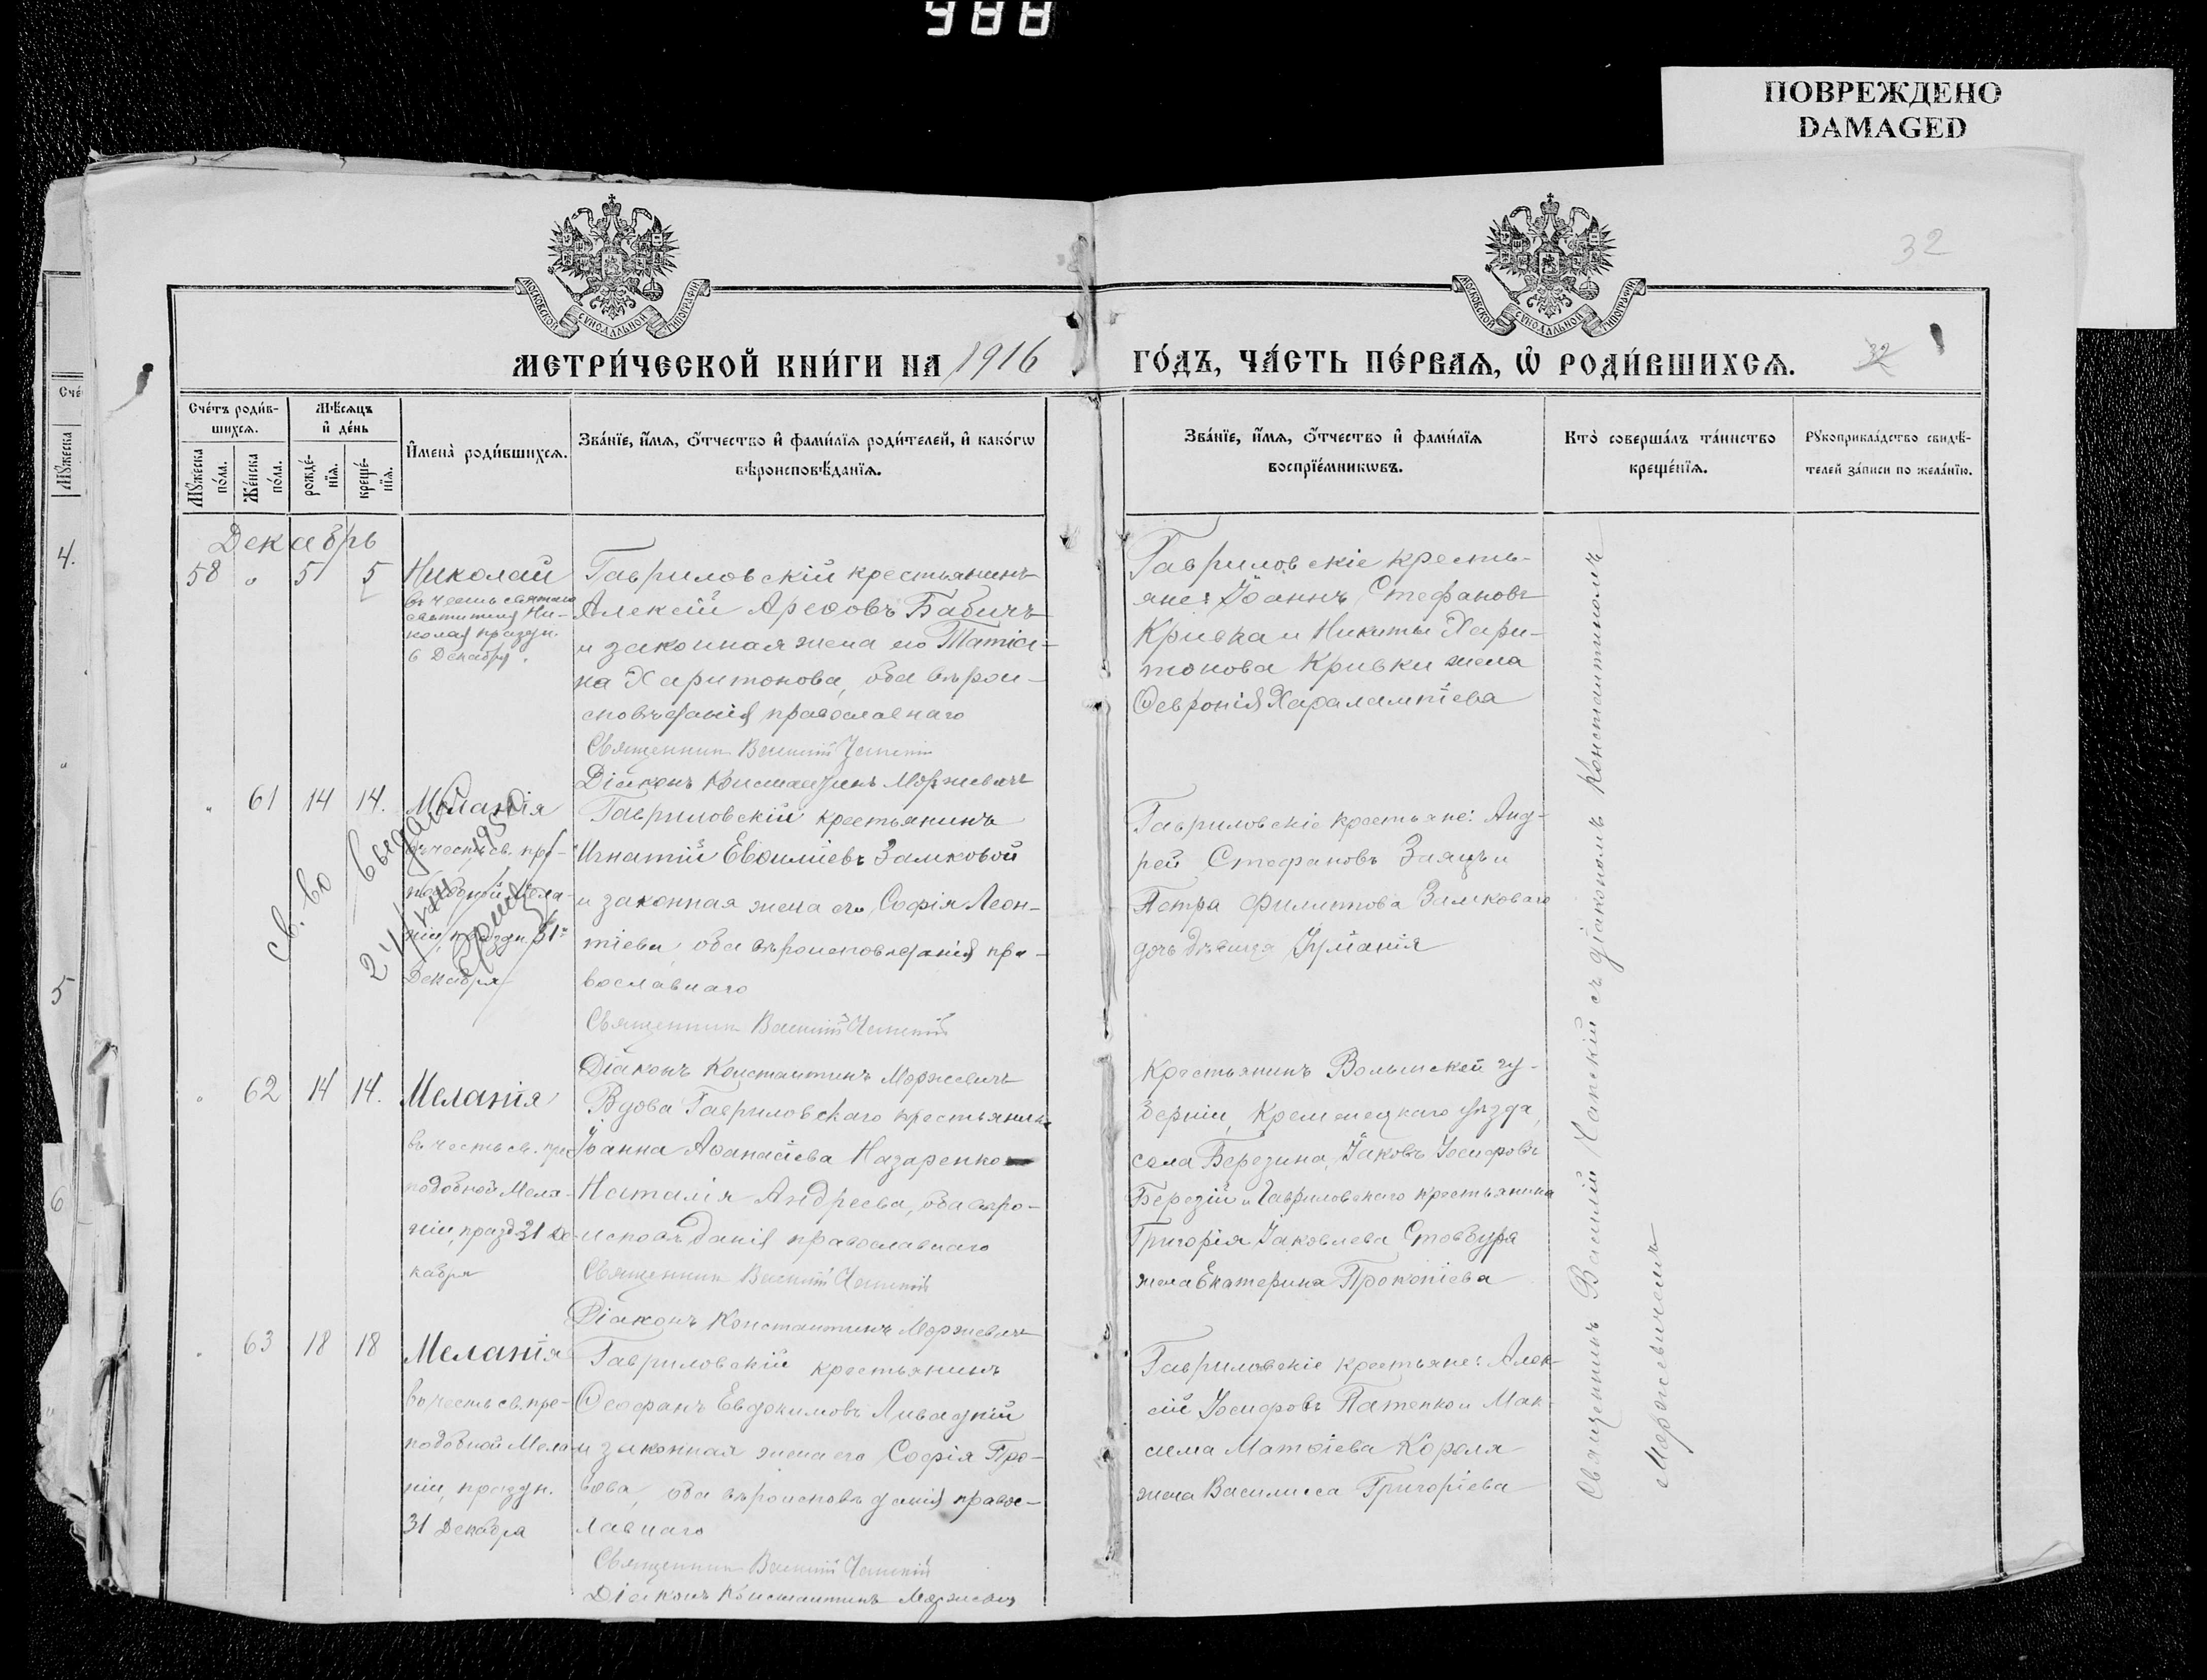 988
ПОВРЕЖДЕНО
DAMAGED
32
МОСКОВСКОЙ СѴНОДАЛЬНОЙ ТИПОГРАФІИ
МОСКОВСКОЙ СѴНОДАЛЬНОЙ ТИПОГРАФІИ
МЕТРИ́ЧЕСКОЙ КНИ́ГИ НА 1916
ГО́ДЪ, ЧА́СТЬ ПЕ́РВАѦ, Ѡ҆ РОДИ́ВШИХСѦ.
32
Сче́тъ роди́в-
шихсѧ.
Мѣ́сѧцъ
и҆ де́нь
Мꙋ́жеска
по́ла.
Же́нска
по́ла.
рожде́-
нїѧ.
креще́-
нїѧ.
И҆мена̀ роди́вшихсѧ.
Зва́нїе, и҆́мѧ, ѻ҆́тчество и҆ фами́лїѧ роди́телей, и҆ како́гѡ
вѣроисповѣ́данїѧ.
Зва́нїе, и҆́мѧ, ѻ҆́тчество и҆ фами́лїѧ
воспрїе́мникѡвъ.
Кто̀ соверша́лъ та́инство
креще́нїѧ.
Рꙋкоприкла́дство свидѣ́-
телей за́писи по жела́нїю.
Декабрь
58 " 5 5 Николай
въ честь святаго
святителя Ни-
колая праздн.
6 Декабря.
Гавриловскій крестьянинъ
Алексій Ареѳовъ Бабичъ
и законная жена его Татіа-
на Харитонова, оба вѣрои-
сповѣданія православнаго
Священникъ Василій Чапскій
Діаконъ Константинъ Моржевичъ
Гавриловскіе кресть-
яне: Іоаннъ Стефановъ
Кривка и Никиты Хари-
тонова Кривки жена
Ѳевронія Харалампіева
" 61 14 14. Меланія
въ честь св. пре-
подобной Мела-
ніи, праздн. 31го
Декабря
св. во выдан
Гавриловскій крестьянинъ
Игнатій Евѳиміевъ Замковой
и законная жена его Софія Леон-
тіева, оба вѣроисповѣданія пра-
вославнаго
Священникъ Василій Чапскій
Діаконъ Константинъ Моржевичъ
Гавриловскіе крестьяне: Анд-
рей Стефановъ Заяцъ и
Петра Филиппова Замковаго
дочь дѣвица Іуліанія
" 62 14 14. Меланія
въ честь св. пре-
подобной Мела-
ніи, празд. 31 Де-
кабря
Вдова Гавриловскаго крестьянина
Іоанна Аѳанасіева Назаренко
Наталія Андреева, оба вѣро-
исповѣданія православнаго
Священникъ Василій Чапскій
Діаконъ Константинъ Моржевичъ
Крестьянинъ Волынской гу-
берніи, Кременецкаго уѣзда,
села Березина, Іаковъ Іосифовъ
Березій и Гавриловскаго крестьянина
Григорія Іаковлева Стовбура
жена Екатерина Прокопіева
" 63 18 18 Меланія
въ честь св. пре-
подобной Мела-
ніи, праздн.
31 Декабря
Гавриловскій крестьянинъ
Ѳеофанъ Евдокимовъ Ливадній
и законная жена его Софія Про-
вова, оба вѣроисповѣданія правос-
лавнаго
Священникъ Василій Чапскій
Діаконъ Константинъ Моржевичъ
Гавриловскіе крестьяне: Алек-
сій Іосифовъ Патенко и Мак-
сима Матѳіева Короля
жена Василисса Григоріева
Священникъ Василій Чапскій съ діакономъ Константиномъ
Моржевичемъ
Сче
Мꙋ́жеска
4.
5
6